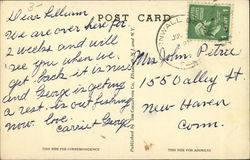 POST CARD
Dear Lillian
We are over here for
2 weeks and will
see you when we
get back it is nice
and George is getting
a rest. Is out fishing
now. love.
Carrie & George
Mrs John. Petrie
155 Valley St
New Haven
Conn.
THIS SIDE FOR CORRESPONDENCE
THIS SIDE FOR ADDRESS